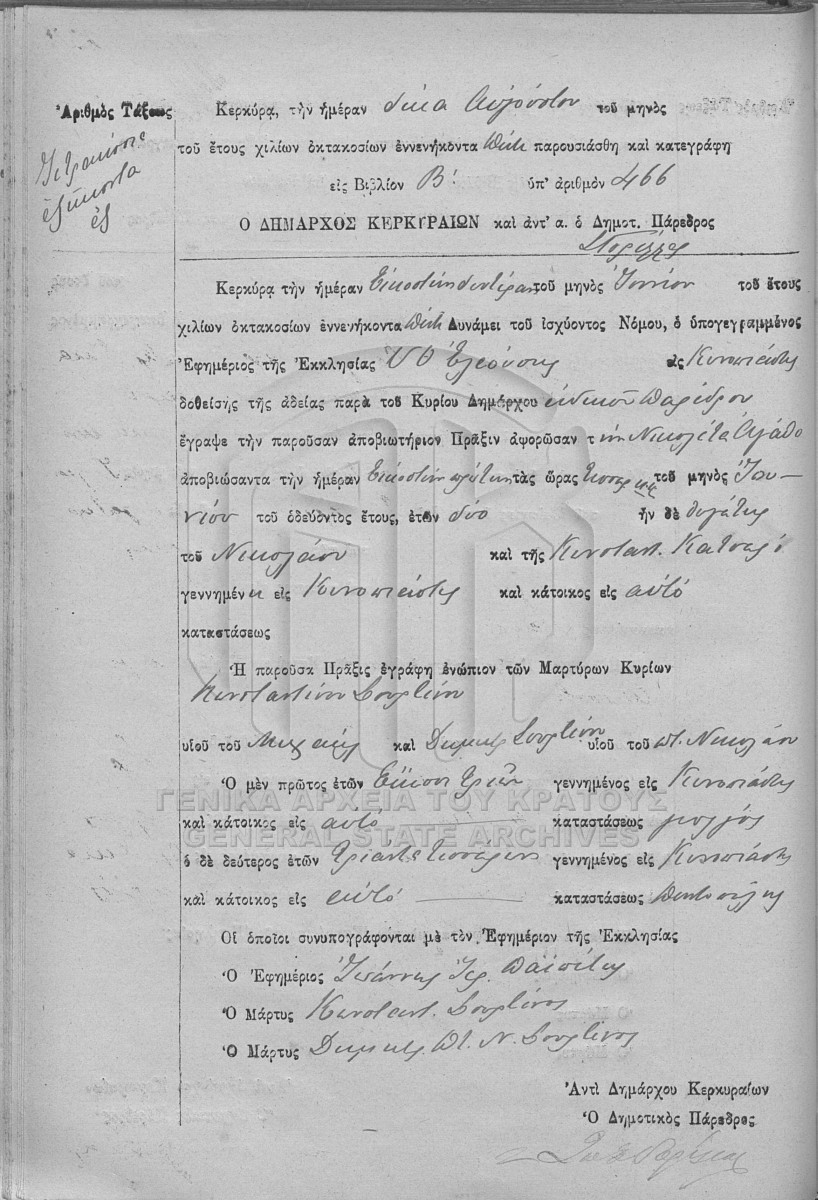 Ἀριθμὸς Τάξεως
Τετρακόσια
ἑξήκοντα
ἕξ
Κερκύρα, τὴν ἡμέραν δέκα Αὐγούστου τοῦ μηνὸς
τοῦ ἔτους χιλίων ὀκτακοσίων ἐννενήκοντα πέντε παρουσιάσθη καὶ κατεγράφη
εἰς Βιβλίον Β! ὑπ' ἀριθμὸν 466
Ο ΔΗΜΑΡΧΟΣ ΚΕΡΚΥΡΑΙΩΝ καὶ ἀντ' α. ὁ Δημοτ. Πάρεδρος
Κερκύρα τὴν ἡμέραν Εἰκοστὴν δευτέραν τοῦ μηνὸς Ἰουνίου τοῦ ἔτους
χιλίων ὀκτακοσίων ἐννενήκοντα πέντε Δυνάμει τοῦ ἰσχύοντος Νόμου, ὁ ὑπογεγραμμένος
Ἐφημέριος τῆς Ἐκκλησίας Υ Θ Ἐλεούσης εἰς Κυνοπιάστης
δοθείσης τῆς ἀδείας παρὰ τοῦ Κυρίου Δημάρχου εἰδικοῦ Παρέδρου
ἔγραψε τὴν παροῦσαν ἀποβιωτήριον Πρᾶξιν ἀφορῶσαν τ ὴν Νικολέτα Ἀγάθο
ἀποβιώσαντα τὴν ἡμέραν Εἰκοστὴν πρώτην τὰς ὥρας τέσσαρες τοῦ μηνὸς Ἰου–
νίου τοῦ ὁδεύοντος ἔτους, ἐτῶν δύο ἦν δὲ θυγάτηρ
τοῦ Νικολάου καὶ τῆς Κωνσταντ. Κατσαρό
γεννημέν η εἰς Κυνοπιάστης καὶ κάτοικος εἰς αὐτό
καταστάσεως
Ἡ παροῦσα Πρᾶξις ἐγράφη ἐνώπιον τῶν Μαρτύρων Κυρίων
Κωνσταντίνου Σουρτίνου
υἱοῦ τοῦ Μιχαήλ καὶ Δημητ Σουρτίνου υἱοῦ τοῦ πτ. Νικολάου
Ὁ μὲν πρῶτος ἐτῶν Εἴκοσι τριῶν γεννημένος εἰς Κυνοπιάστης
ΓΕΝΙΚΑ ΑΡΧΕΙΑ ΤΟΥ ΚΡΑΤΟΥΣ
καὶ κάτοικος εἰς αὐτό καταστάσεως
GENERAL STATE ARCHIVES
ὁ δὲ δεύτερος ἐτῶν Τριάντα τεσσάρων γεννημένος εἰς Κυνοπιάστης
καὶ κάτοικος εἰς αὐτό καταστάσεως παντοπώλης
Οἱ ὁποῖοι συνυπογράφονται μὲ τὸν Ἐφημέριον τῆς Ἐκκλησίας
Ὁ Ἐφημέριος Ἰωάννης Ἱερ. Παϊπέτης
Ὁ Μάρτυς Κωνσταντ. Σουρτίνος
Ὁ Μάρτυς Δημητ. Πτ. Ν. Σουρτίνος
Ἀντὶ Δημάρχου Κερκυραίων
Ὁ Δημοτικὸς Πάρεδρος